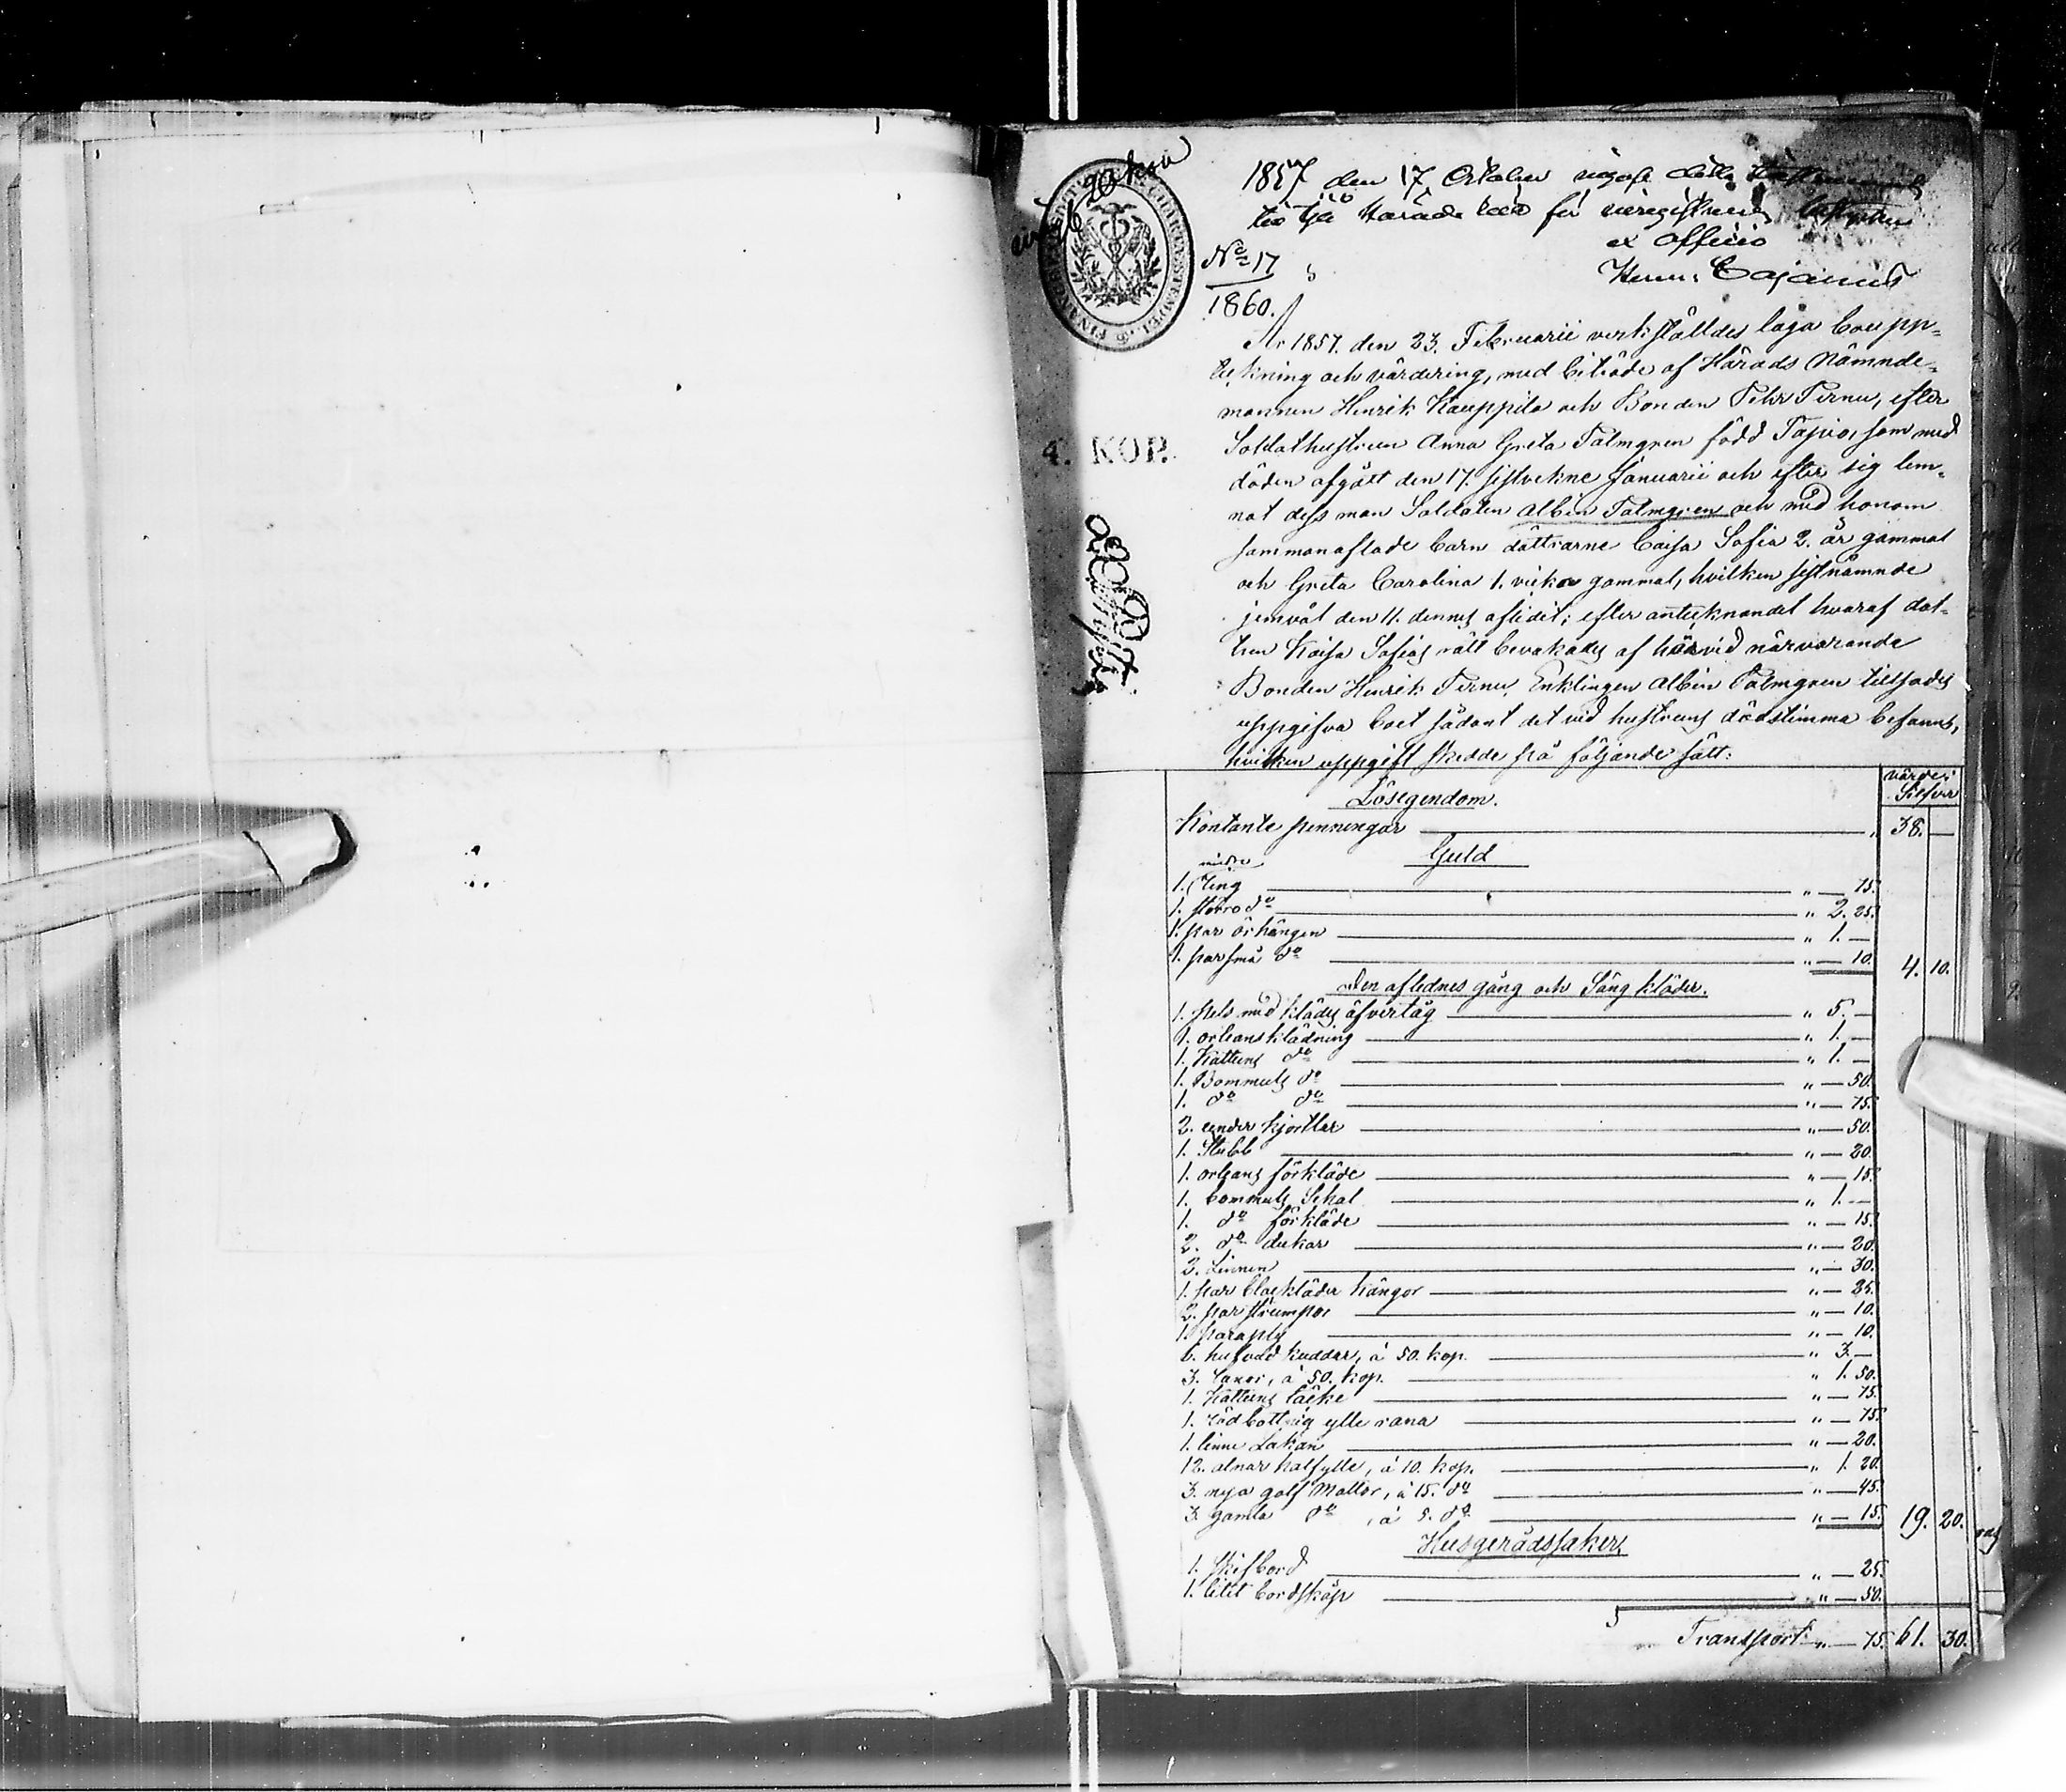 20 kop
1857 den 17 October
ex officio
Cajanus
No 17
1860.
År 1857. den 23. Februarii verkställdes laga Boupp=
teckning och värdering, med biträde af Härads Nämnde=
mannen Henrik Kauppila och Bonden Pehr Ternu, efter
4. KOP.
Soldathustrun Anna Greta Palmgren född Tapio, som med
döden afgått den 17. sistvekne Januarii och efter sig lem=
nat dess man Soldaten Albin Palmgren och med honom
sammanaflade barn döttrarne Caisa Sofia 2. år gammal
och Greta Carolina 1. vicka gammal, hvilken sistnämnde
jemväl den 11. dennes aflidit; efter antecknandet hvaraf dot=
tren Kaisa Sofias rätt bevakades af härvid närvarande
Bonden Henrik Ternu. Enklingen Albin Palmgren tillsades
uppgifva boet sådant det vid hustruns dödstimma befanns,
hvilken uppgift skedde på följande sätt:
värde i
Silfver
Lösegendom.
Kontante penningar " 38. —
Guld
mindre
1. Ring " — 75.
1. större do " 2. 25.
1. par örhängen " 1. —
1. par små do " — 10. 4. 10.
Den aflednes gång och Säng kläder.
1. pels med klädes öfvertåg " 5. —
1. orleans klädning " 1. —
1. Kattuns do " 1. —
1. Bommuls do " — 50.
1. do do " — 75.
2. under kjortlar " — 50.
1. Stubb " — 20.
1. orleans förkläde " — 15.
1. bommuls Schal " 1. —
1. do förkläde " — 15.
2. do dukar " — 20.
2. Linnen " — 30.
1. par kängor " — 25.
2. par strumpor " — 10.
1. paraply " — 10.
6. hufvud kuddar, á 50. kop. " 3. —
3. á 50. kop. " 1. 50.
1. Kattuns täcke " — 75.
1. rödbottnig ylle rana " — 75.
1. linne Lakan " — 20.
12. alnar halfylle, á 10. kop. " 1. 20.
3. nya golf Mattor, á 15. do " — 45.
3. gamla do, á 5. do " — 15. 19. 20.
Husgerådssaker
1. Skifbord " — 25.
1. litet bordskåp " — 50.
Transport " — 75. 61. 30.